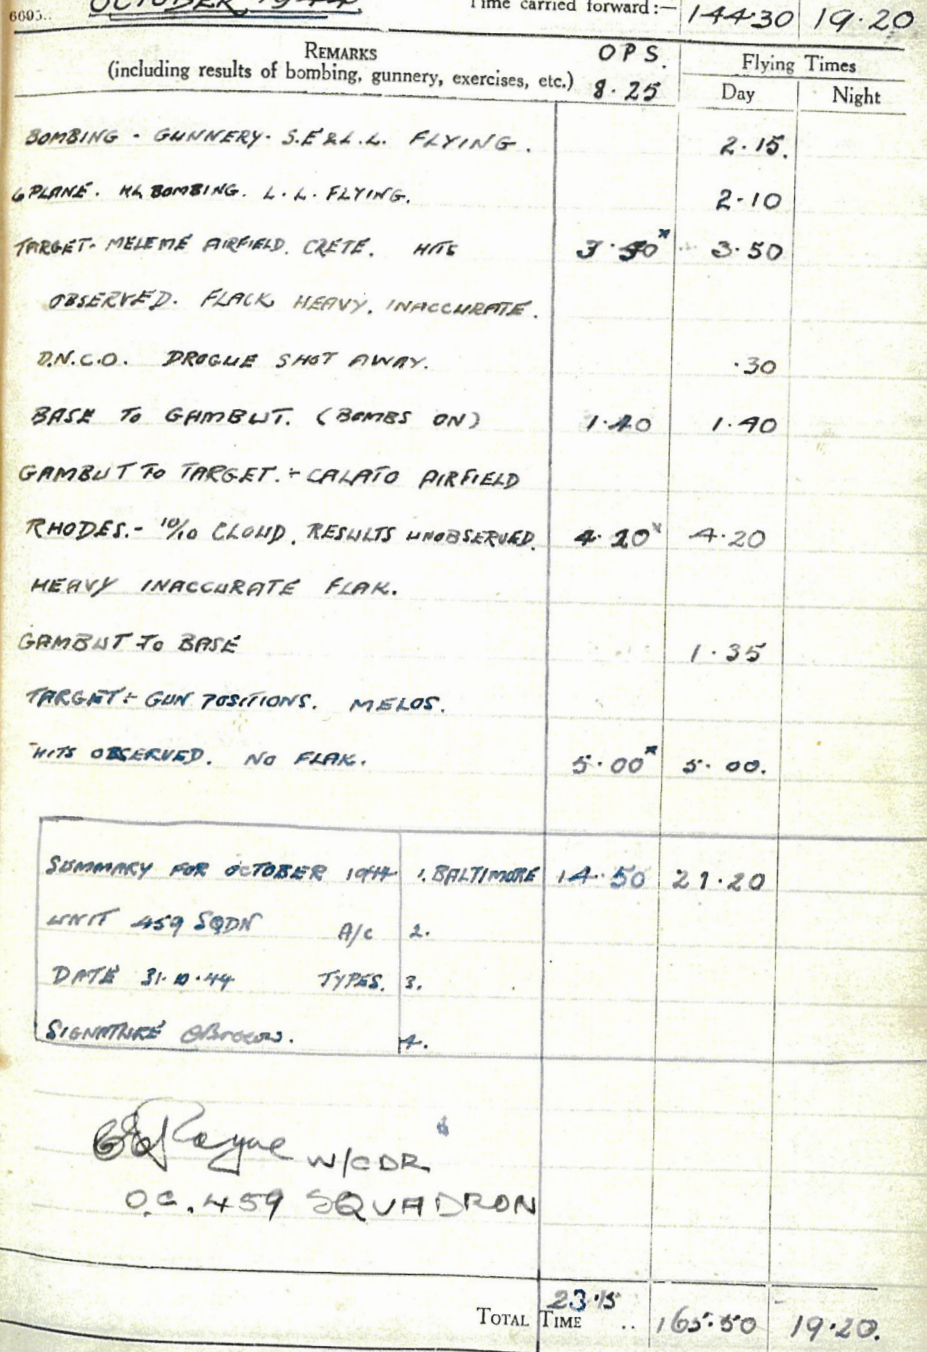 OCTOBER 1944
6695.. Time carried forward:— 144·30 19·20
REMARKS OPS. Flying Times
(including results of bombing, gunnery, exercises, etc.) 8·25 Day Night
BOMBING - GUNNERY - S.E & L.L. FLYING. 2·15.
6 PLANE. H.L BOMBING. L.L. FLYING. 2·10
TARGET- MELEME AIRFIELD. CRETE. HITS 3·50 x 3·50
OBSERVED. FLACK HEAVY, INACCURATE.
D.N.C.O. DROGUE SHOT AWAY. ·30
BASE TO GAMBUT. (BOMBS ON) 1·40 1·40
GAMBUT TO TARGET:- CALATO AIRFIELD
RHODES.- 10/10 CLOUD, RESULTS UNOBSERVED. 4·20 x 4·20
HEAVY INACCURATE FLAK.
GAMBUT TO BASE 1·35
TARGET:- GUN POSITIONS. MELOS.
HITS OBSERVED. NO FLAK. 5·00 x 5·00.
SUMMARY FOR OCTOBER 1944 1. BALTIMORE 14·50 21·20
UNIT 459 SQDN A/C 2.
DATE 31·10·44 TYPES. 3.
SIGNATURE OBrown. 4.
W/CDR
O.C. 459 SQUADRON
23·15
TOTAL TIME .. 165·50 19·20.